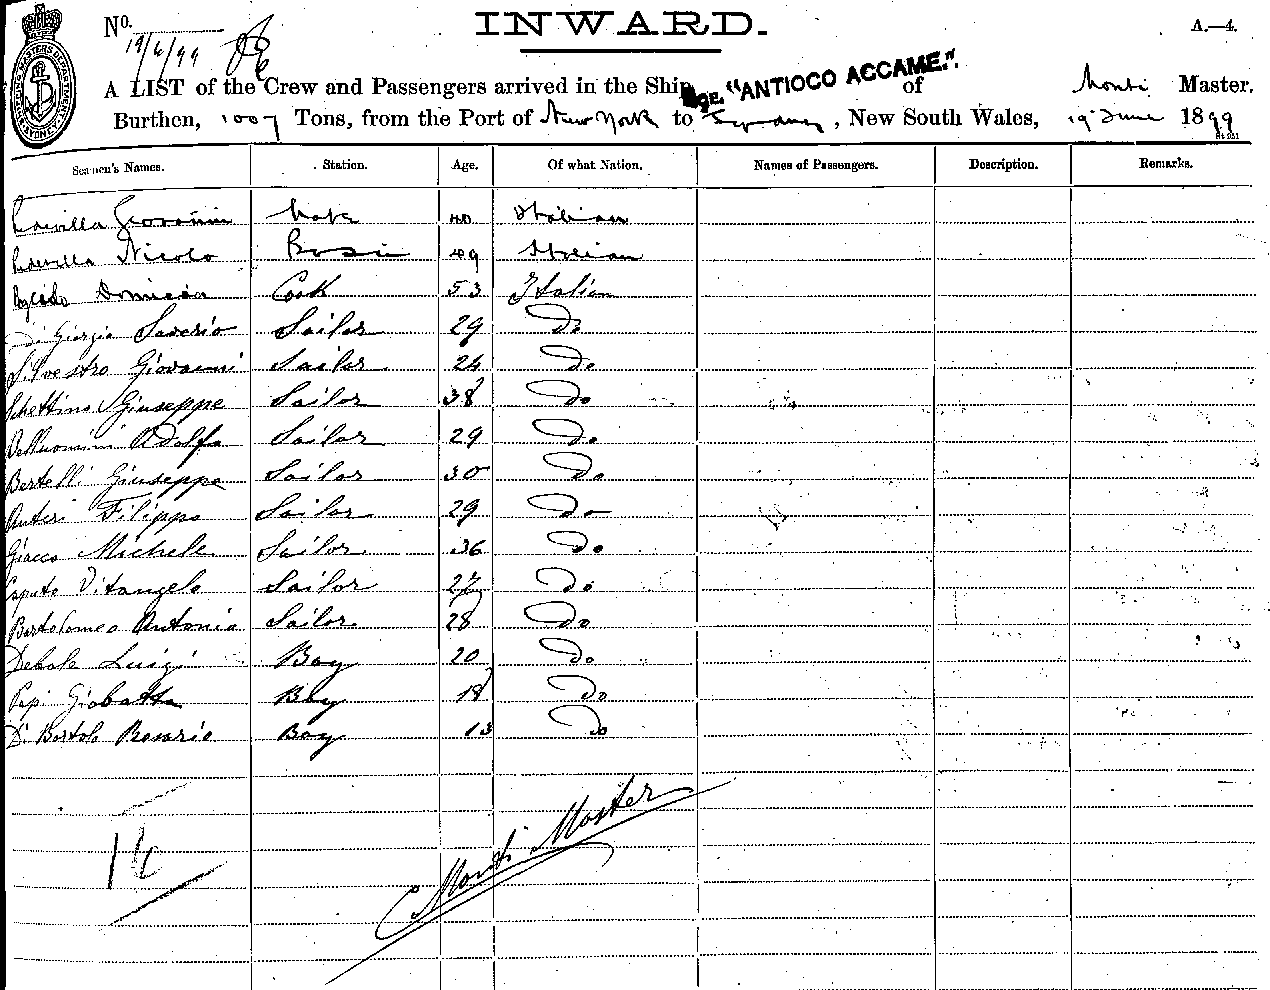 INWARD.
No.
19/6/99
A.—4.
A LIST of the Crew and Passengers arrived in the Ship Bqe. "ANTIOCO ACCAME." of Monti Master.
Burthen, 1007 Tons, from the Port of New York to Sydney, New South Wales, 19 June 1899
Seamen's Names. Station. Age. Of what Nation. Names of Passengers. Description. Remarks.
Giovanni Mate 40 Italian
Nicolo Bosin 49 Italian
Cook 53 Italian
Di Giorgio Saverio Sailor 29 Do
Silvestro Giovanni Sailor 24 Do
Schettino Giuseppe Sailor 38 Do
Belluomini Adolfo Sailor 29 Do
Bertelli Giuseppe Sailor 30 Do
Anteri Filippo Sailor 29 Do
Giacco Michele Sailor 36 Do
Caputo Vitangelo Sailor 27 Do
Bartolomeo Antonio Sailor 28 Do
Debole Luigi Boy 20 Do
Papi Giobatta Boy 18 Do
Di Bartolo Rosario Boy 13 Do
Monti Master